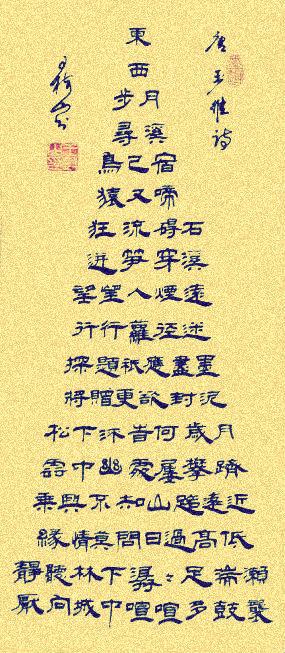 唐王維詩
東
西
步月
尋溪
鳥已宿
猿又啼
狂流碍石
迸笋穿溪
望望人煙遠
行行蘿徑迷
探題祇應盡墨
將贈更欲封泥
松下 何歲月
雲中幽處屢攀躋
乘興不知山路遠近
緣情莫問日過高低
靜聽林下潺々足湍瀨
厭向城中喧喧多鼓鼙